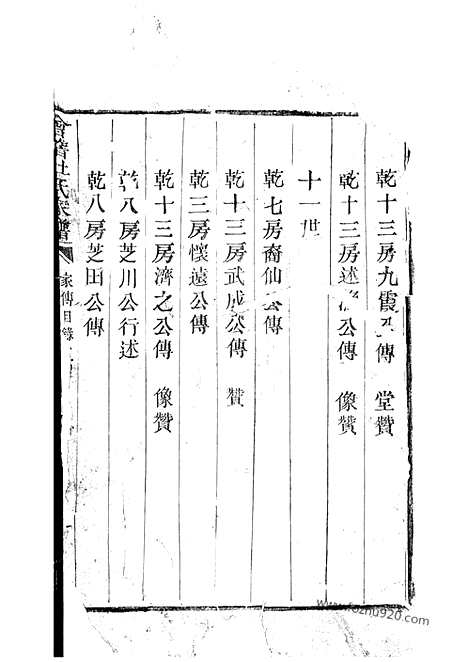 乾十三房九霞公傳　堂贊
乾十三房述 公傳　像贊
十一世
乾七房裔仙公傳
乾十三房武成公傳　贊
乾三房懷遠公傳
乾十三房濟之公傳　像贊
乾八房芝川公行述
乾八房芝田公傳
會稽杜氏家譜
家傳目錄
www.fozhu920.com